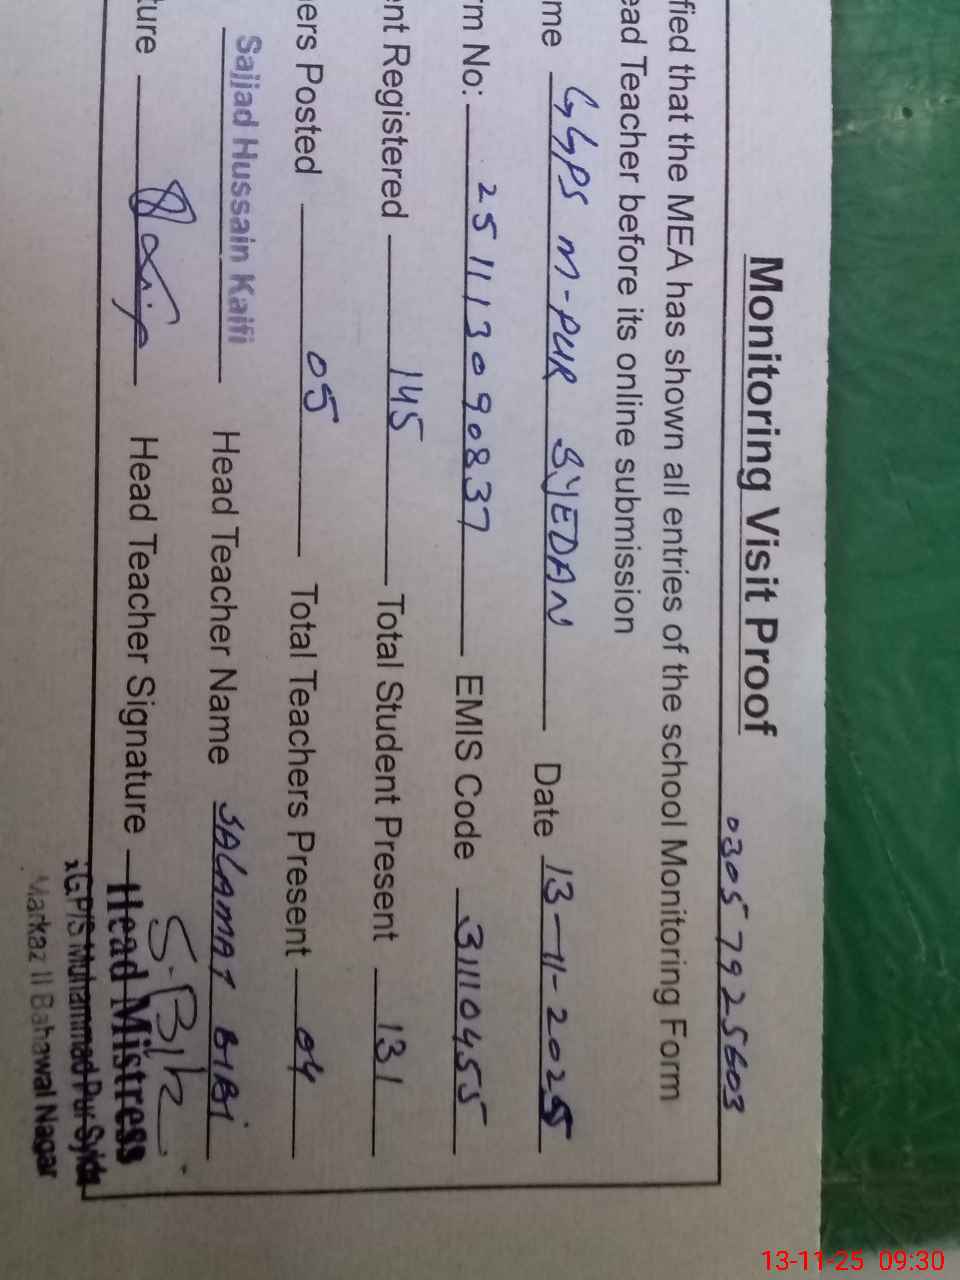 Monitoring Visit Proof
03057925603
fied that the MEA has shown all entries of the school Monitoring Form
ead Teacher before its online submission
me GGPS M-PUR SYEDAN Date 13-11-2025
rm No: 251113090837 EMIS Code 31110455
ent Registered 145 Total Student Present 131
ers Posted 05 Total Teachers Present 04
Sajjad Hussain Kaifi Head Teacher Name SALAMAT BIBI
ture Head Teacher Signature S.Bibi
Head Mistress
GGP/S Muhammad Pur Syida
Markaz II Bahawal Nagar
13-11-25 09:30